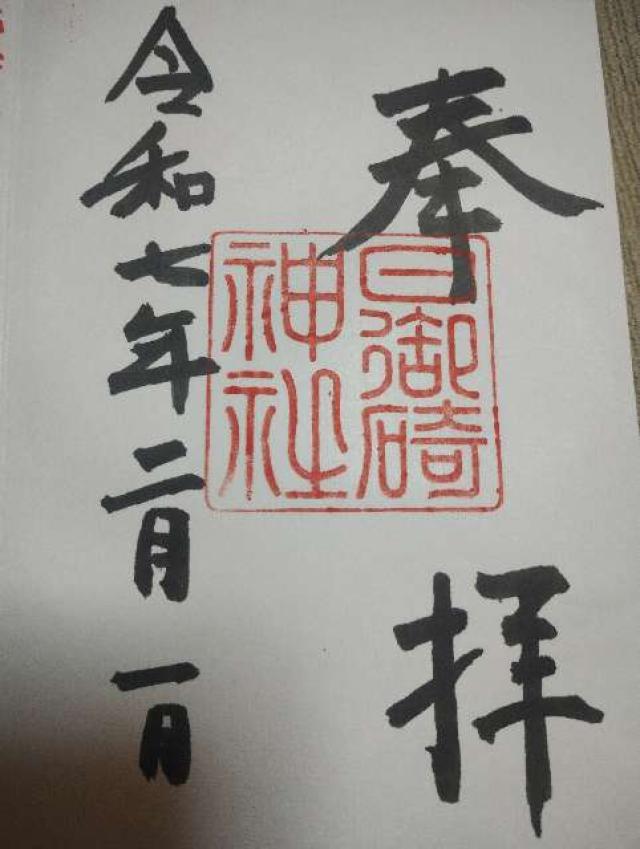 奉拝
日御碕
神社
令和七年二月一月